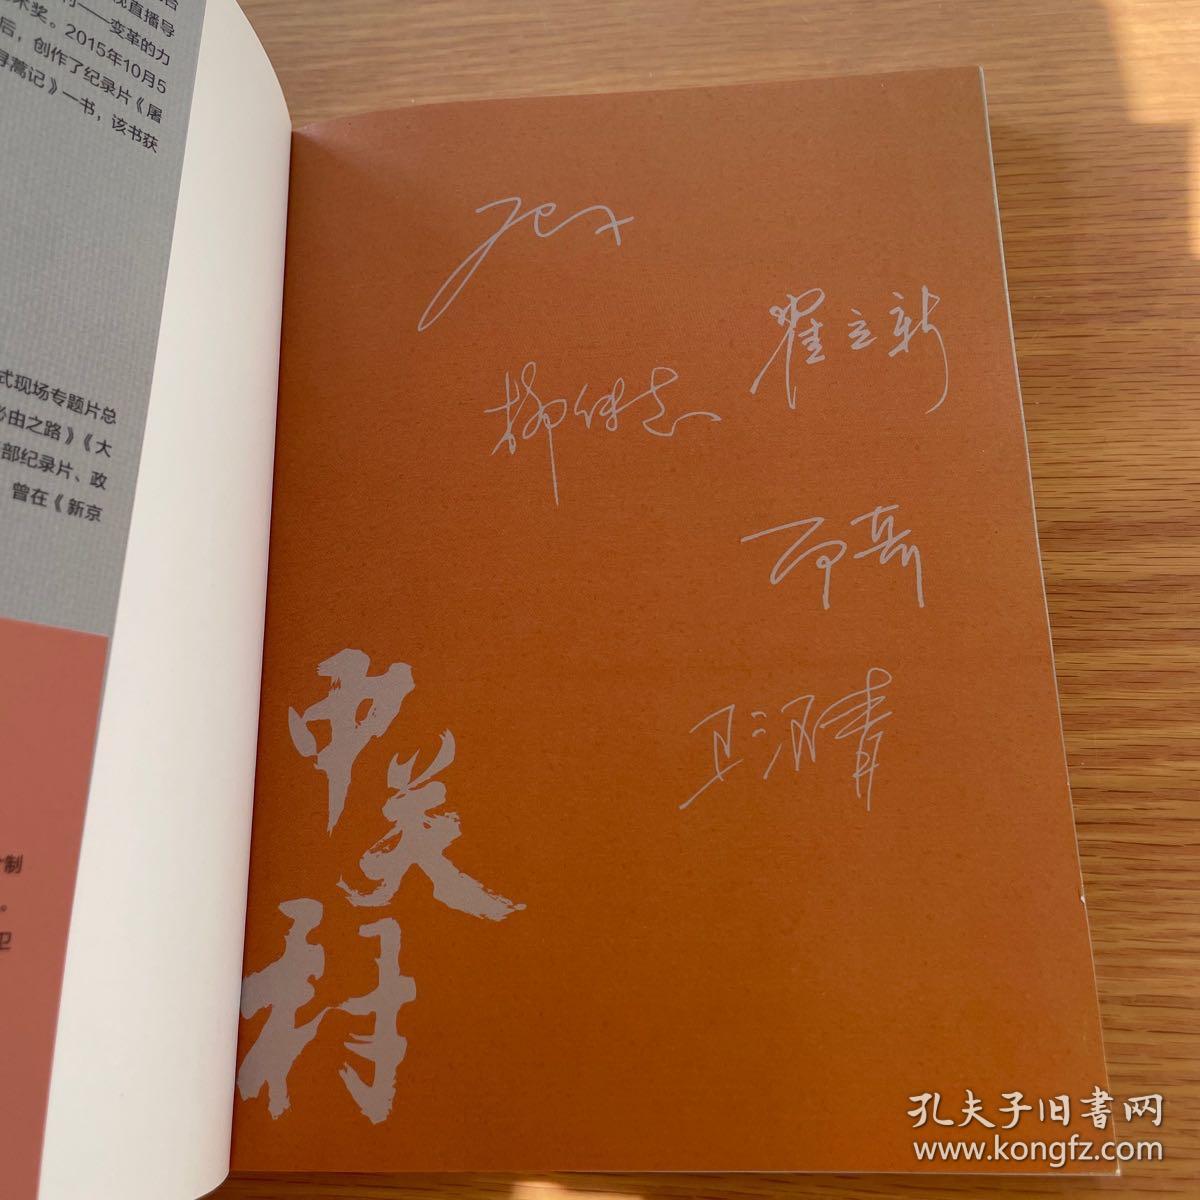 视直播导
——变革的力
术奖。2015年10月5
后，创作了纪录片《屠
寻蒿记》一书，该书获
式现场专题片总
必由之路》《大
部纪录片、政
曾在《新京
制
。
卫
翟立新
柳传志
中关村
孔夫子旧书网
www.kongfz.com